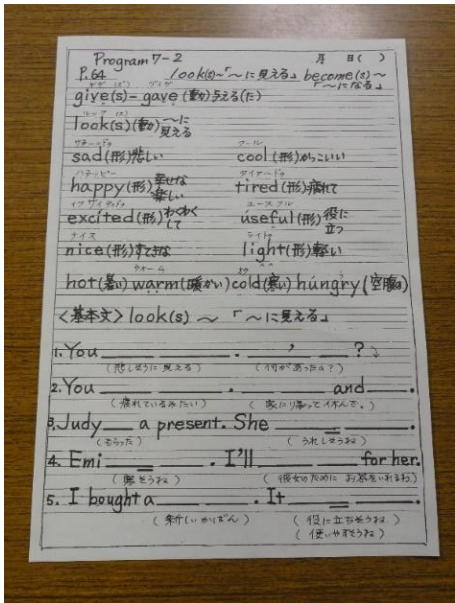 Program 7-2 月 日( )
P.64 look(s)~「～に見える」 become(s)～
「～になる」
give(s)-gave(動)与える(た)
ルック (ス)
look(s)(動)～に見える
sad(形)悲しい cool(形)かっこいい
ハァッピー タイアードゥ
happy(形)幸せな 楽しい tired(形)疲れて
イクサイティッドゥ ユースフル
excited(形)わくわくして úseful(形)役に立つ
ナイス ライトゥ
nice(形)すてきな light(形)軽い
ウォーム
hot(暑い) warm(暖かい) cold(寒い) húngry(空腹の)
<基本文> look(s) ～ 「～に見える」
1. You ___ ___. ___'___ ___?
(悲しそうに見える) (何があったの?)
2. You ___ ___. ___ ___ and ___.
(疲れているみたい) (家に帰って休んで。)
3. Judy ___ a present. She ___ ___.
(もらった) (うれしそうね)
4. Emi ___ ___. I'll ___ ___ for her.
(寒そうね) (彼女のために お茶をいれるわ)
5. I bought a ___ ___. It ___ ___.
(新しいかばん) (役に立ちそうね)
(使いやすそうね)